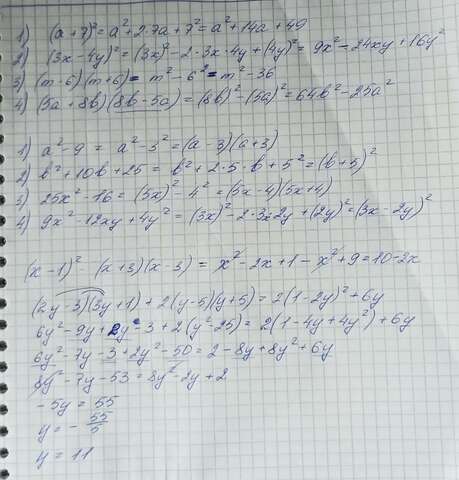 1) (a+7)² = a²+2·7a+7² = a²+14a+49
2) (3x-4y)² = (3x)²-2·3x·4y+(4y)² = 9x²-24xy+16y²
3) (m-6)(m+6) = m²-6² = m²-36
4) (5a+8b)(8b-5a) = (8b)²-(5a)² = 64b²-25a²
1) a²-9 = a²-3² = (a-3)(a+3)
2) b²+10b+25 = b²+2·5·b+5² = (b+5)²
3) 25x²-16 = (5x)²-4² = (5x-4)(5x+4)
4) 9x²-12xy+4y² = (3x)²-2·3x·2y+(2y)² = (3x-2y)²
(x-1)²-(x+3)(x-3) = x²-2x+1-x²+9 = 10-2x
(2y-3)(3y+1)+2(y-5)(y+5) = 2(1-2y)²+6y
6y²-9y+2y-3+2(y²-25) = 2(1-4y+4y²)+6y
6y²-7y-3+2y²-50 = 2-8y+8y²+6y
8y²-7y-53 = 8y²-2y+2
-5y = 55
y = -55/5
y = 11